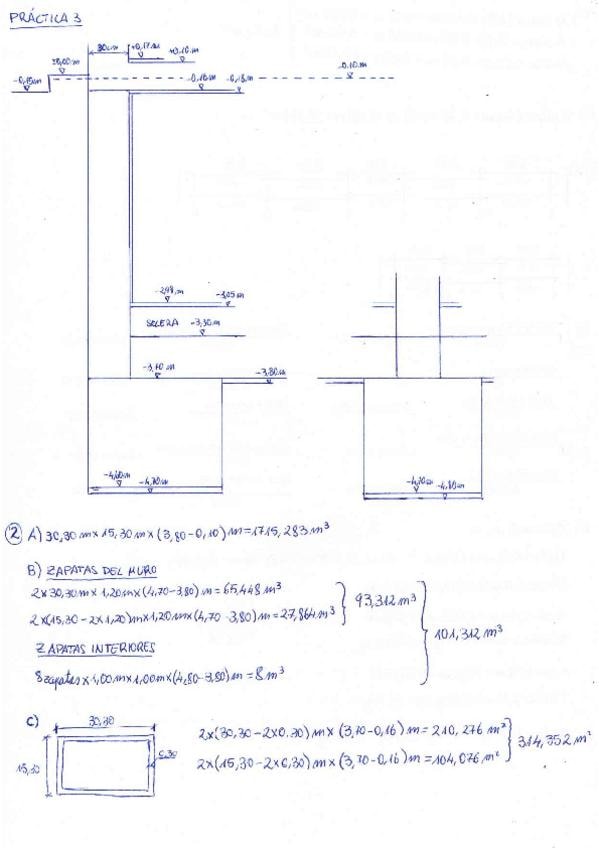 PRÁCTICA 3
30cm
+0,17m
+0,10m
±0,00m
-0,10m
-0,15m
-0,16m
-0,18m
-2,98m
-3,05m
SOLERA
-3,30m
-3,70m
-3,80m
-4,60m
-4,70m
-4,70m
-4,80m
② A) 30,30m x 15,30m x (3,80-0,10)m = 1715,283 m³
B) ZAPATAS DEL MURO
2 x 30,30m x 1,20m x (4,70-3,80)m = 65,448 m³
2 x (15,30 - 2 x 1,20)m x 1,20m x (4,70-3,80)m = 27,864 m³
93,312 m³
101,312 m³
ZAPATAS INTERIORES
8 zapatas x 1,00m x 1,00m x (4,80-3,80)m = 8 m³
C)
30,30
15,30
0,30
2 x (30,30 - 2 x 0.30)m x (3,70-0,16)m = 210,276 m²
2 x (15,30 - 2 x 0,30)m x (3,70-0,16)m = 104,076 m²
314,352 m²